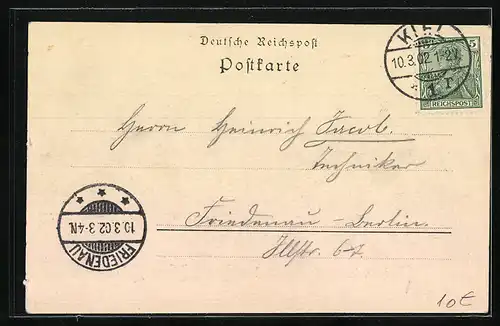 Deutsche Reichspost
Postkarte
KIEL
10.3.02 1-2N
* 1 *
5
REICHSPOST
Herrn Heinrich Jacob.
Techniker
Friedenau-Berlin.
Illstr. 6
FRIEDENAU
10.3.02 3-4N.
10€